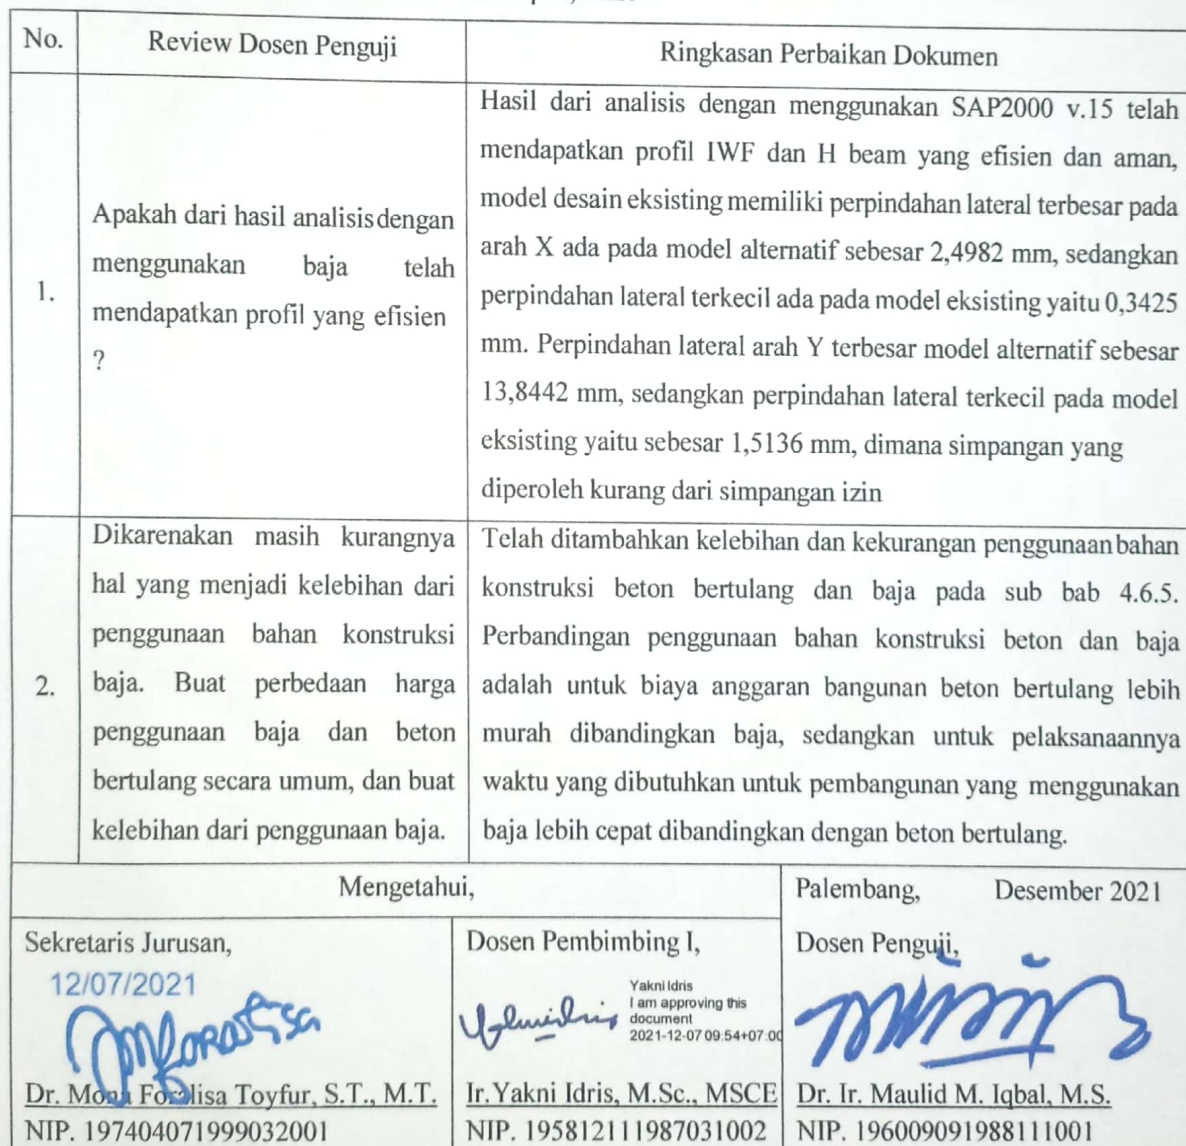 No.
Review Dosen Penguji
Ringkasan Perbaikan Dokumen
1.
Apakah dari hasil analisis dengan
menggunakan baja telah
mendapatkan profil yang efisien
?
Hasil dari analisis dengan menggunakan SAP2000 v.15 telah
mendapatkan profil IWF dan H beam yang efisien dan aman,
model desain eksisting memiliki perpindahan lateral terbesar pada
arah X ada pada model alternatif sebesar 2,4982 mm, sedangkan
perpindahan lateral terkecil ada pada model eksisting yaitu 0,3425
mm. Perpindahan lateral arah Y terbesar model alternatif sebesar
13,8442 mm, sedangkan perpindahan lateral terkecil pada model
eksisting yaitu sebesar 1,5136 mm, dimana simpangan yang
diperoleh kurang dari simpangan izin
2.
Dikarenakan masih kurangnya
hal yang menjadi kelebihan dari
penggunaan bahan konstruksi
baja. Buat perbedaan harga
penggunaan baja dan beton
bertulang secara umum, dan buat
kelebihan dari penggunaan baja.
Telah ditambahkan kelebihan dan kekurangan penggunaan bahan
konstruksi beton bertulang dan baja pada sub bab 4.6.5.
Perbandingan penggunaan bahan konstruksi beton dan baja
adalah untuk biaya anggaran bangunan beton bertulang lebih
murah dibandingkan baja, sedangkan untuk pelaksanaannya
waktu yang dibutuhkan untuk pembangunan yang menggunakan
baja lebih cepat dibandingkan dengan beton bertulang.
Mengetahui,
Palembang, Desember 2021
Sekretaris Jurusan,
12/07/2021
Dr. Mona Foralisa Toyfur, S.T., M.T.
NIP. 197404071999032001
Dosen Pembimbing I,
Yakni Idris
I am approving this
document
2021-12-07 09:54+07:00
Ir. Yakni Idris, M.Sc., MSCE
NIP. 195812111987031002
Dosen Penguji,
Dr. Ir. Maulid M. Iqbal, M.S.
NIP. 196009091988111001